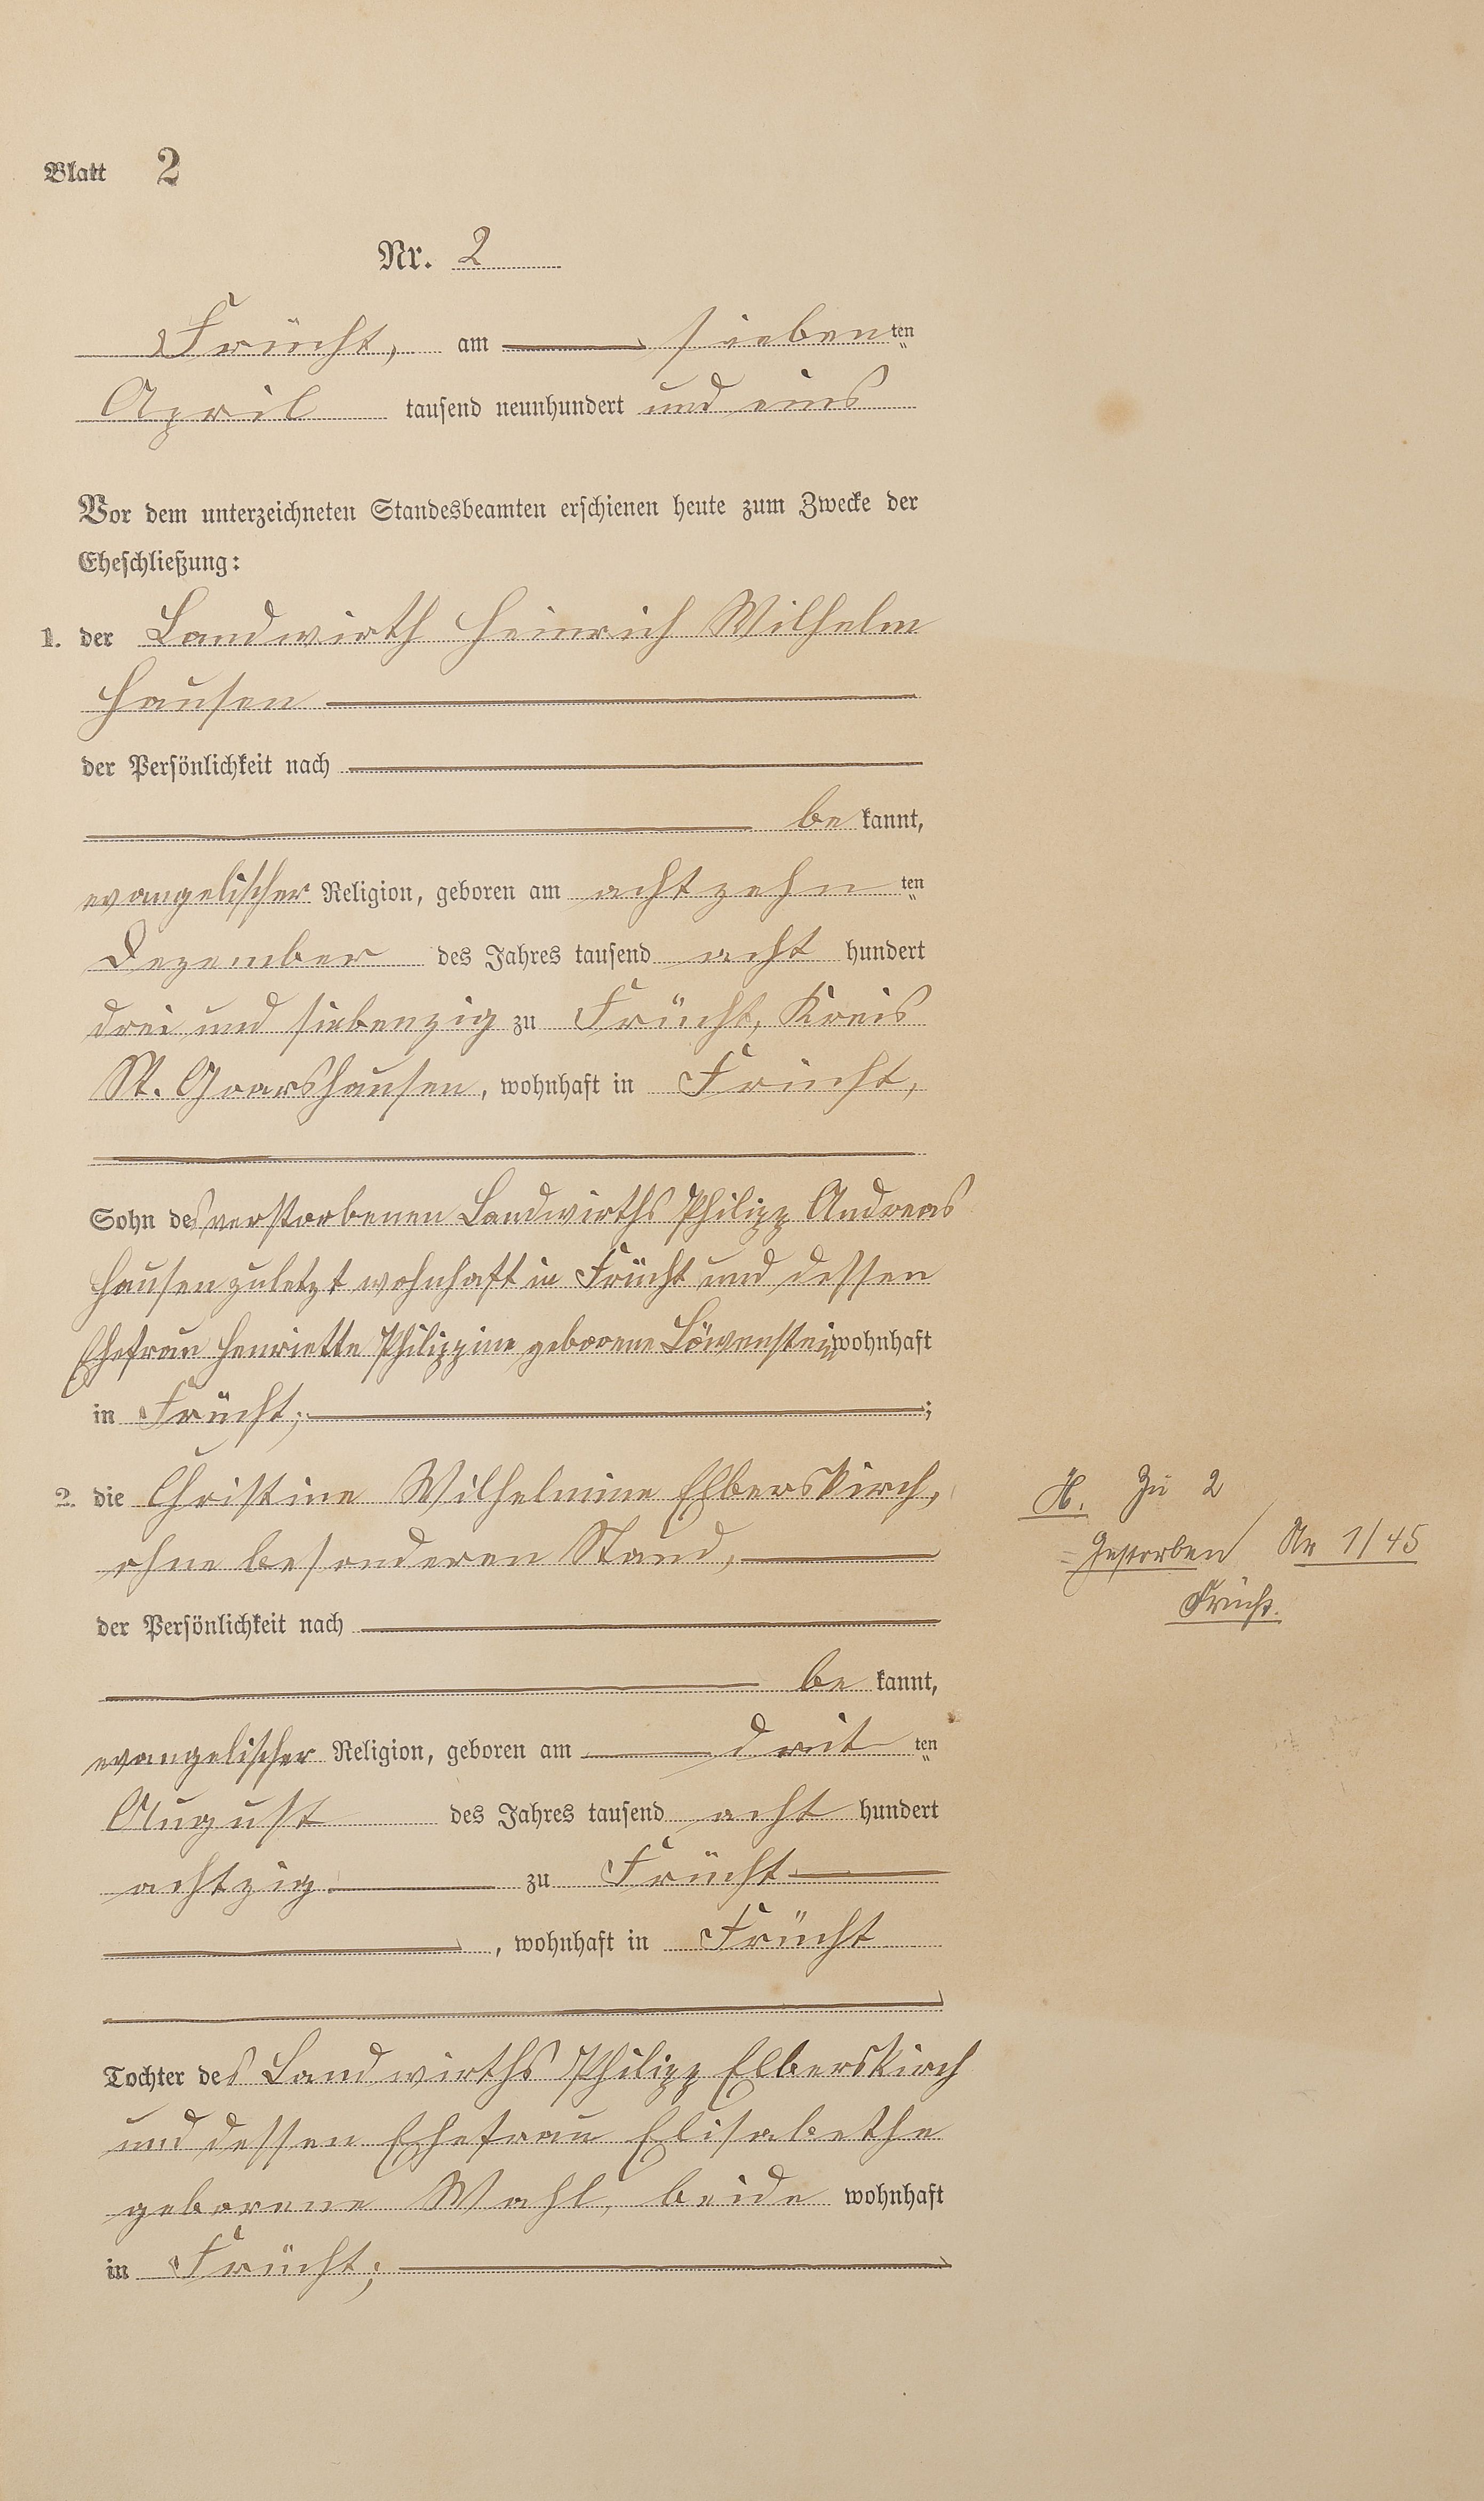 Blatt 2
Nr. 2
Frücht, am siebenten
April tausend neunhundert und eins
Vor dem unterzeichneten Standesbeamten erschienen heute zum Zwecke der
Eheschließung:
1. der Landwirth Heinrich Wilhelm
Hausen
der Persönlichkeit nach
be kannt,
evangelischer Religion, geboren am achtzehn ten
Dezember des Jahres tausend acht hundert
drei und siebenzig zu Frücht, Kreis
St. Goarshausen, wohnhaft in Frücht,
Sohn des verstorbenen Landwirths Philipp Andreas
Hausen zuletzt wohnhaft in Frücht und dessen
Ehefrau Henriette Philippine geborene Löwenstein wohnhaft
in Frücht; ;
2. die Christine Wilhelmine Elberskirch,
ohne besonderen Stand,
der Persönlichkeit nach
be kannt,
evangelischer Religion, geboren am drit ten
August des Jahres tausend acht hundert
achtzig zu Frücht
, wohnhaft in Frücht
Tochter des Landwirths Philipp Elberskirch
und dessen Ehefrau Elisabethe
geborene Wahl, beide wohnhaft
in Frücht;
H. Zu 2
Gestorben Nr 1/45
Frücht.